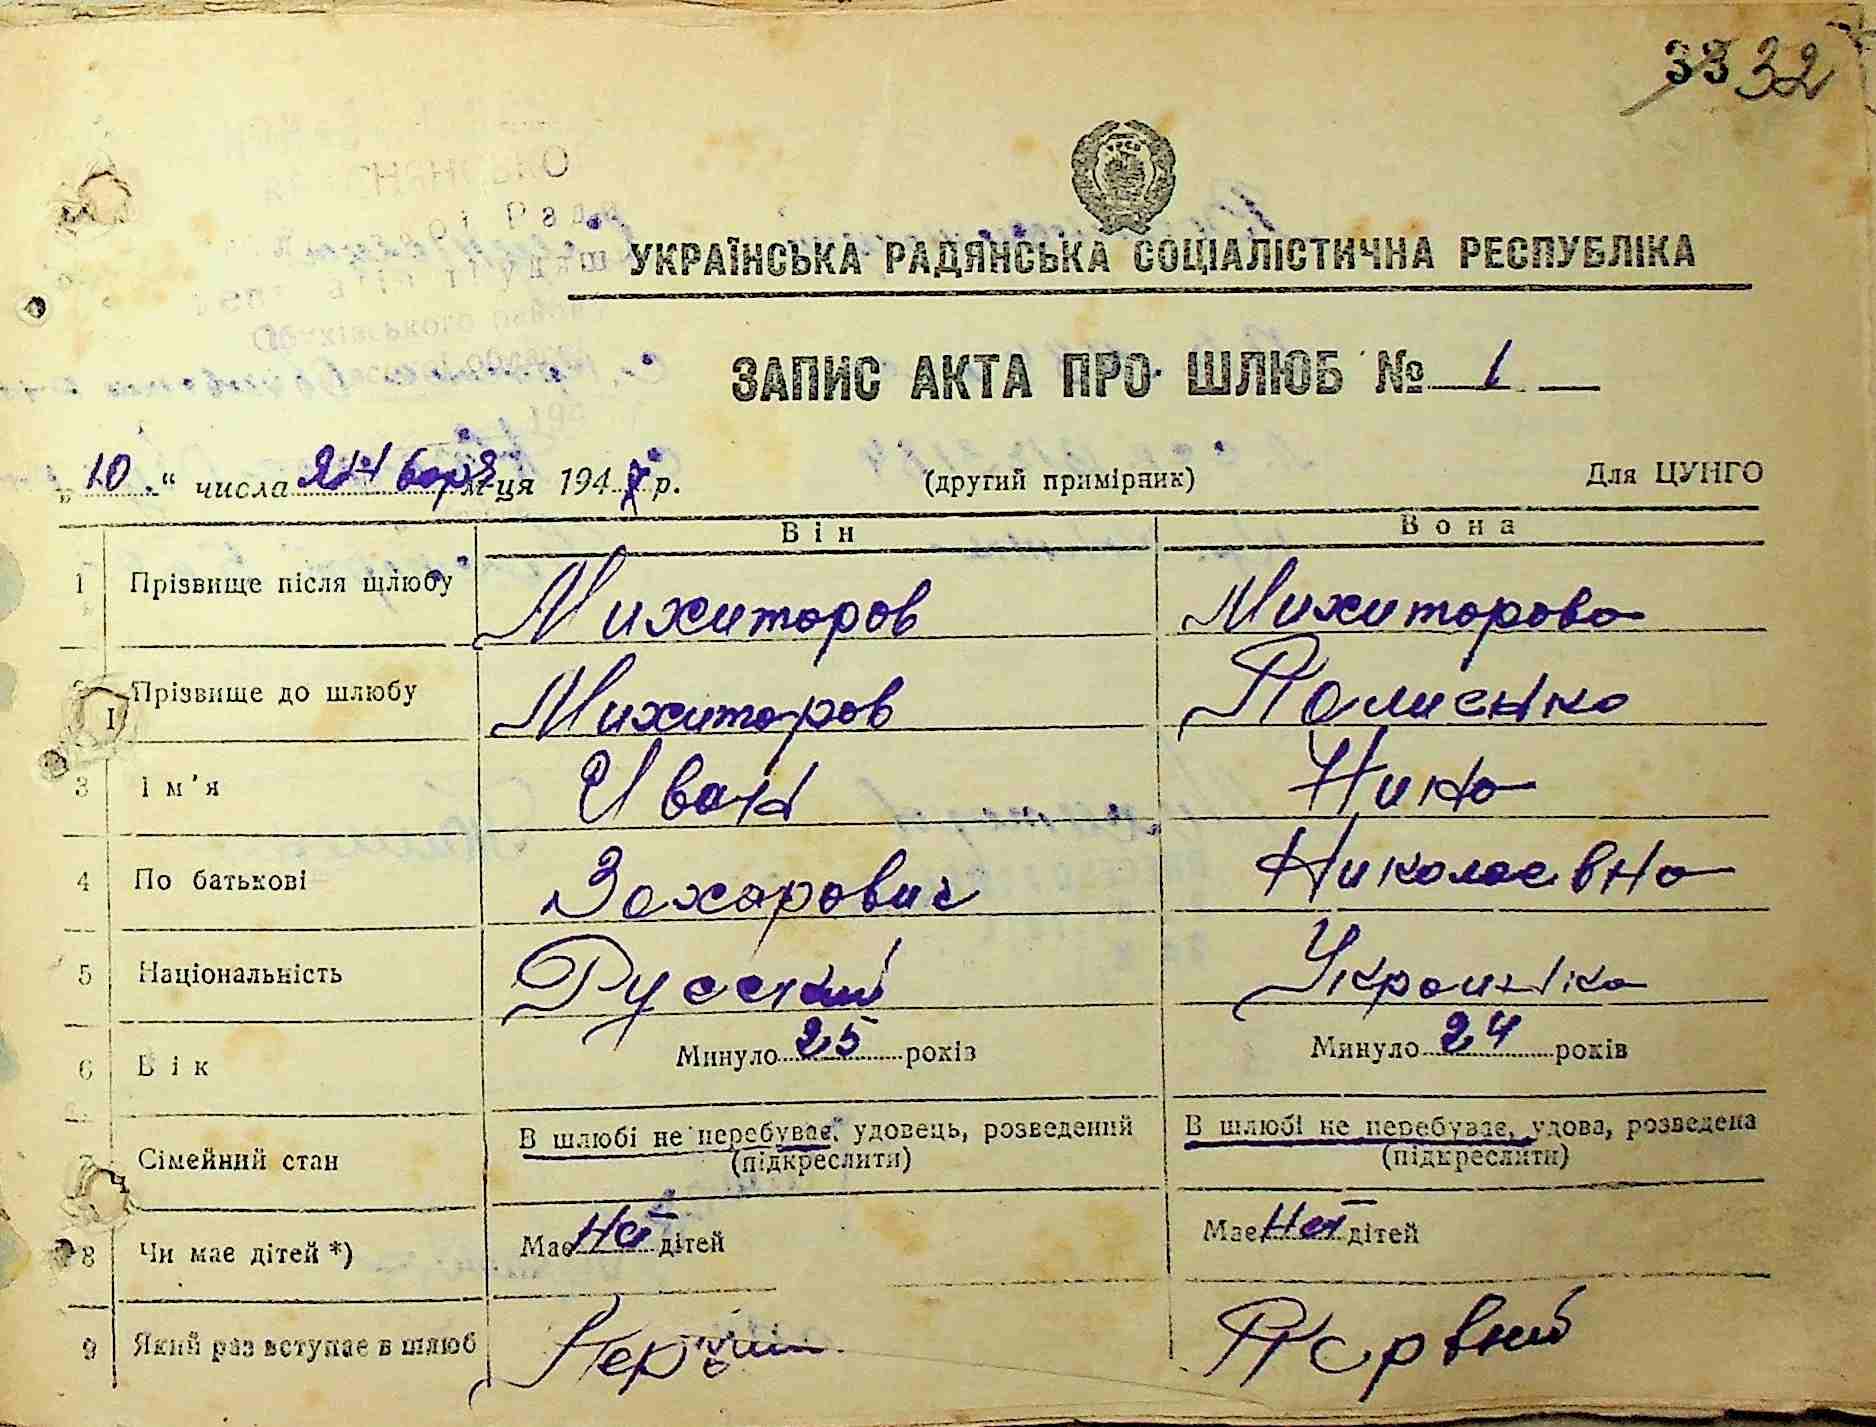 33 32
УКРАЇНСЬКА РАДЯНСЬКА СОЦІАЛІСТИЧНА РЕСПУБЛІКА
ЗАПИС АКТА ПРО ШЛЮБ № 1
„10“ числа января м-ця 1947 р. (другий примірник) Для ЦУНГО
Він Вона
1 Прізвище після шлюбу Михиторов Михиторова
2 Прізвище до шлюбу Михиторов Полиенко
3 Ім'я Иван Нина
4 По батькові Захарович Николаевна
5 Національність Русский Украинка
6 Вік Минуло 25 років Минуло 24 років
7 Сімейний стан В шлюбі не перебуває, удовець, розведений В шлюбі не перебуває, удова, розведена
(підкреслити) (підкреслити)
8 Чи має дітей *) Має Нет дітей Має Нет дітей
9 Який раз вступає в шлюб Первий Первый